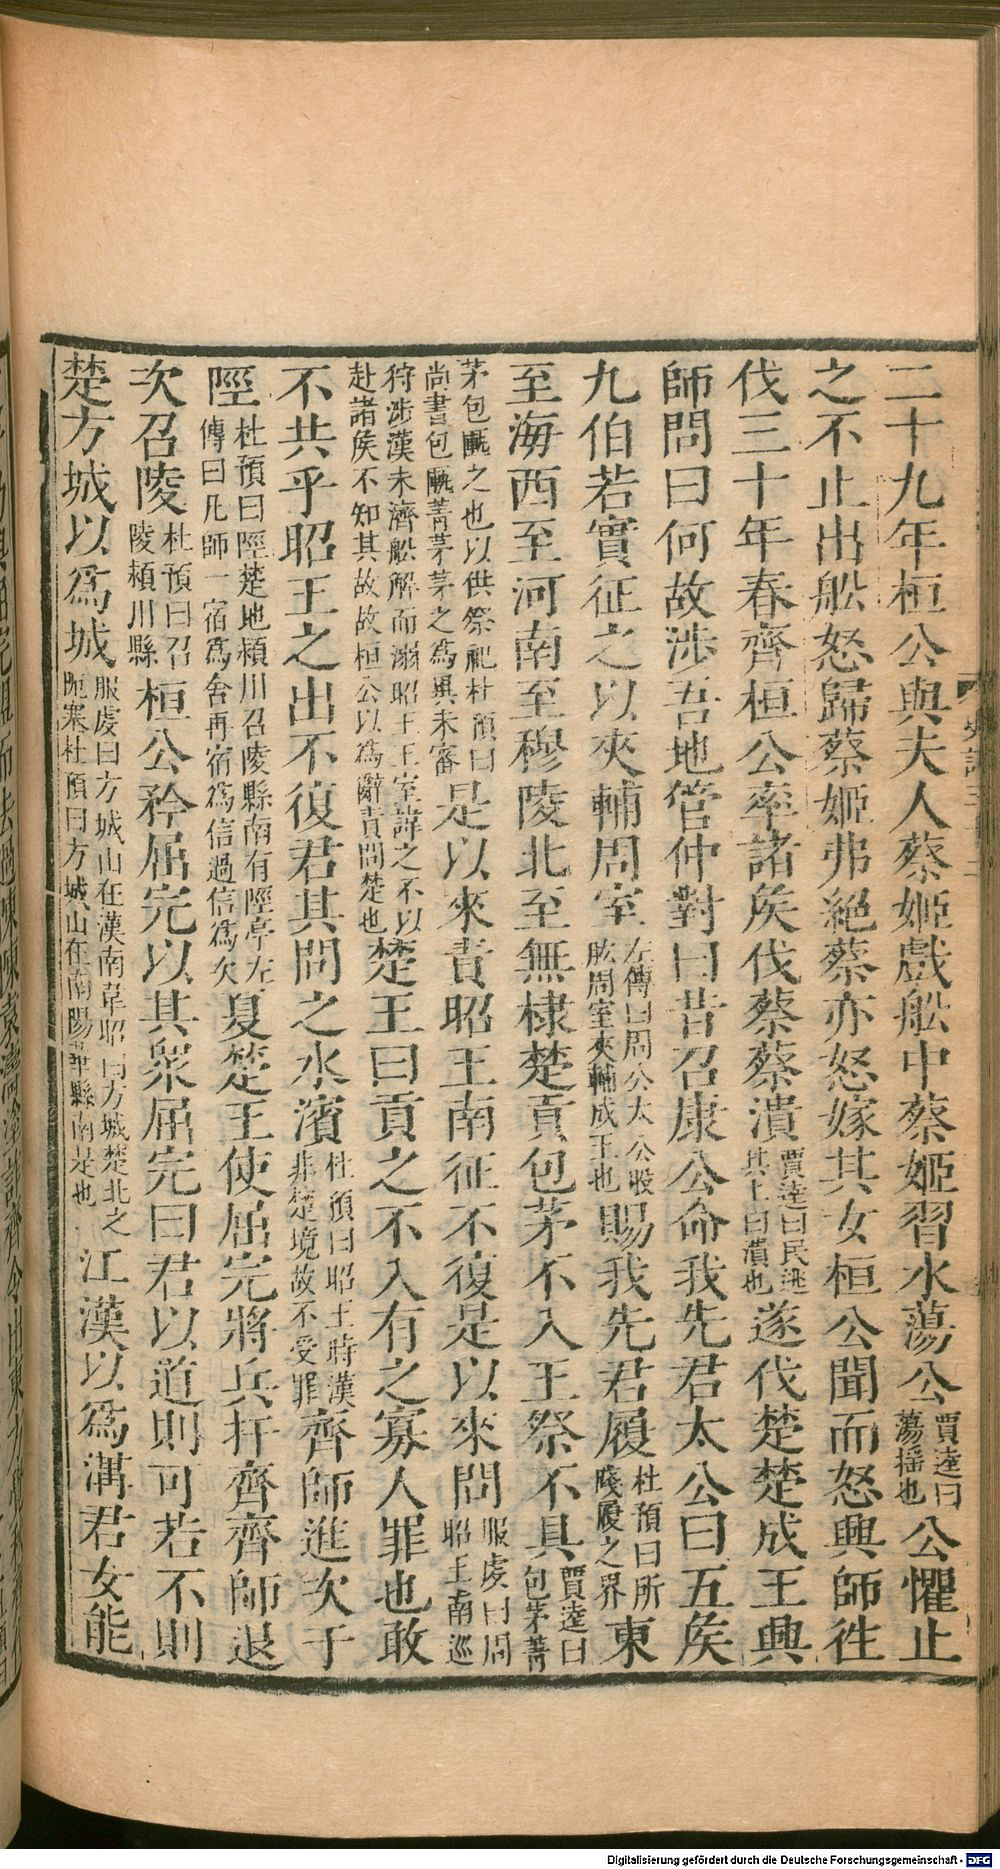 二十九年桓公與夫人蔡姬戲船中蔡姬習水蕩公賈逵曰蕩搖也公懼止
之不止出船怒歸蔡姬弗絕蔡亦怒嫁其女桓公聞而怒興師徃
伐三十年春齊桓公率諸矦伐蔡蔡潰賈逵曰民逃其上曰潰也遂伐楚楚成王興
師問曰何故涉吾地管仲對曰昔召康公命我先君太公曰五矦
九伯若實征之以夾輔周室左傳曰周公太公股肱周室夾輔成王也賜我先君履杜預曰所踐履之界東
至海西至河南至穆陵北至無棣楚貢包茅不入王祭不具賈逵曰包茅菁
茅包匭之也以供祭祀杜預曰尚書包匭菁茅茅之為異未審是以來責昭王南征不復是以來問服虔曰周昭王南巡
狩涉漢未濟船解而溺昭王王室諱之不以赴諸矦不知其故故桓公以為辭責問楚也楚王曰貢之不入有之寡人罪也敢
不共乎昭王之出不復君其問之水濱杜預曰昭王時漢非楚境故不受罪齊師進次于
陘杜預曰陘楚地潁川召陵縣南有陘亭左傳曰凡師一宿為舍再宿為信過信為次夏楚王使屈完將兵扞齊齊師退
次召陵杜預曰召陵潁川縣桓公矜屈完以其衆屈完曰君以道則可若不則
楚方城以為城服虔曰方城山在漢南韋昭曰方城楚北之阨塞杜預曰方城山在南陽葉縣南是也江漢以為溝君女能
史記三十二
Digitalisierung gefördert durch die Deutsche Forschungsgemeinschaft - DFG